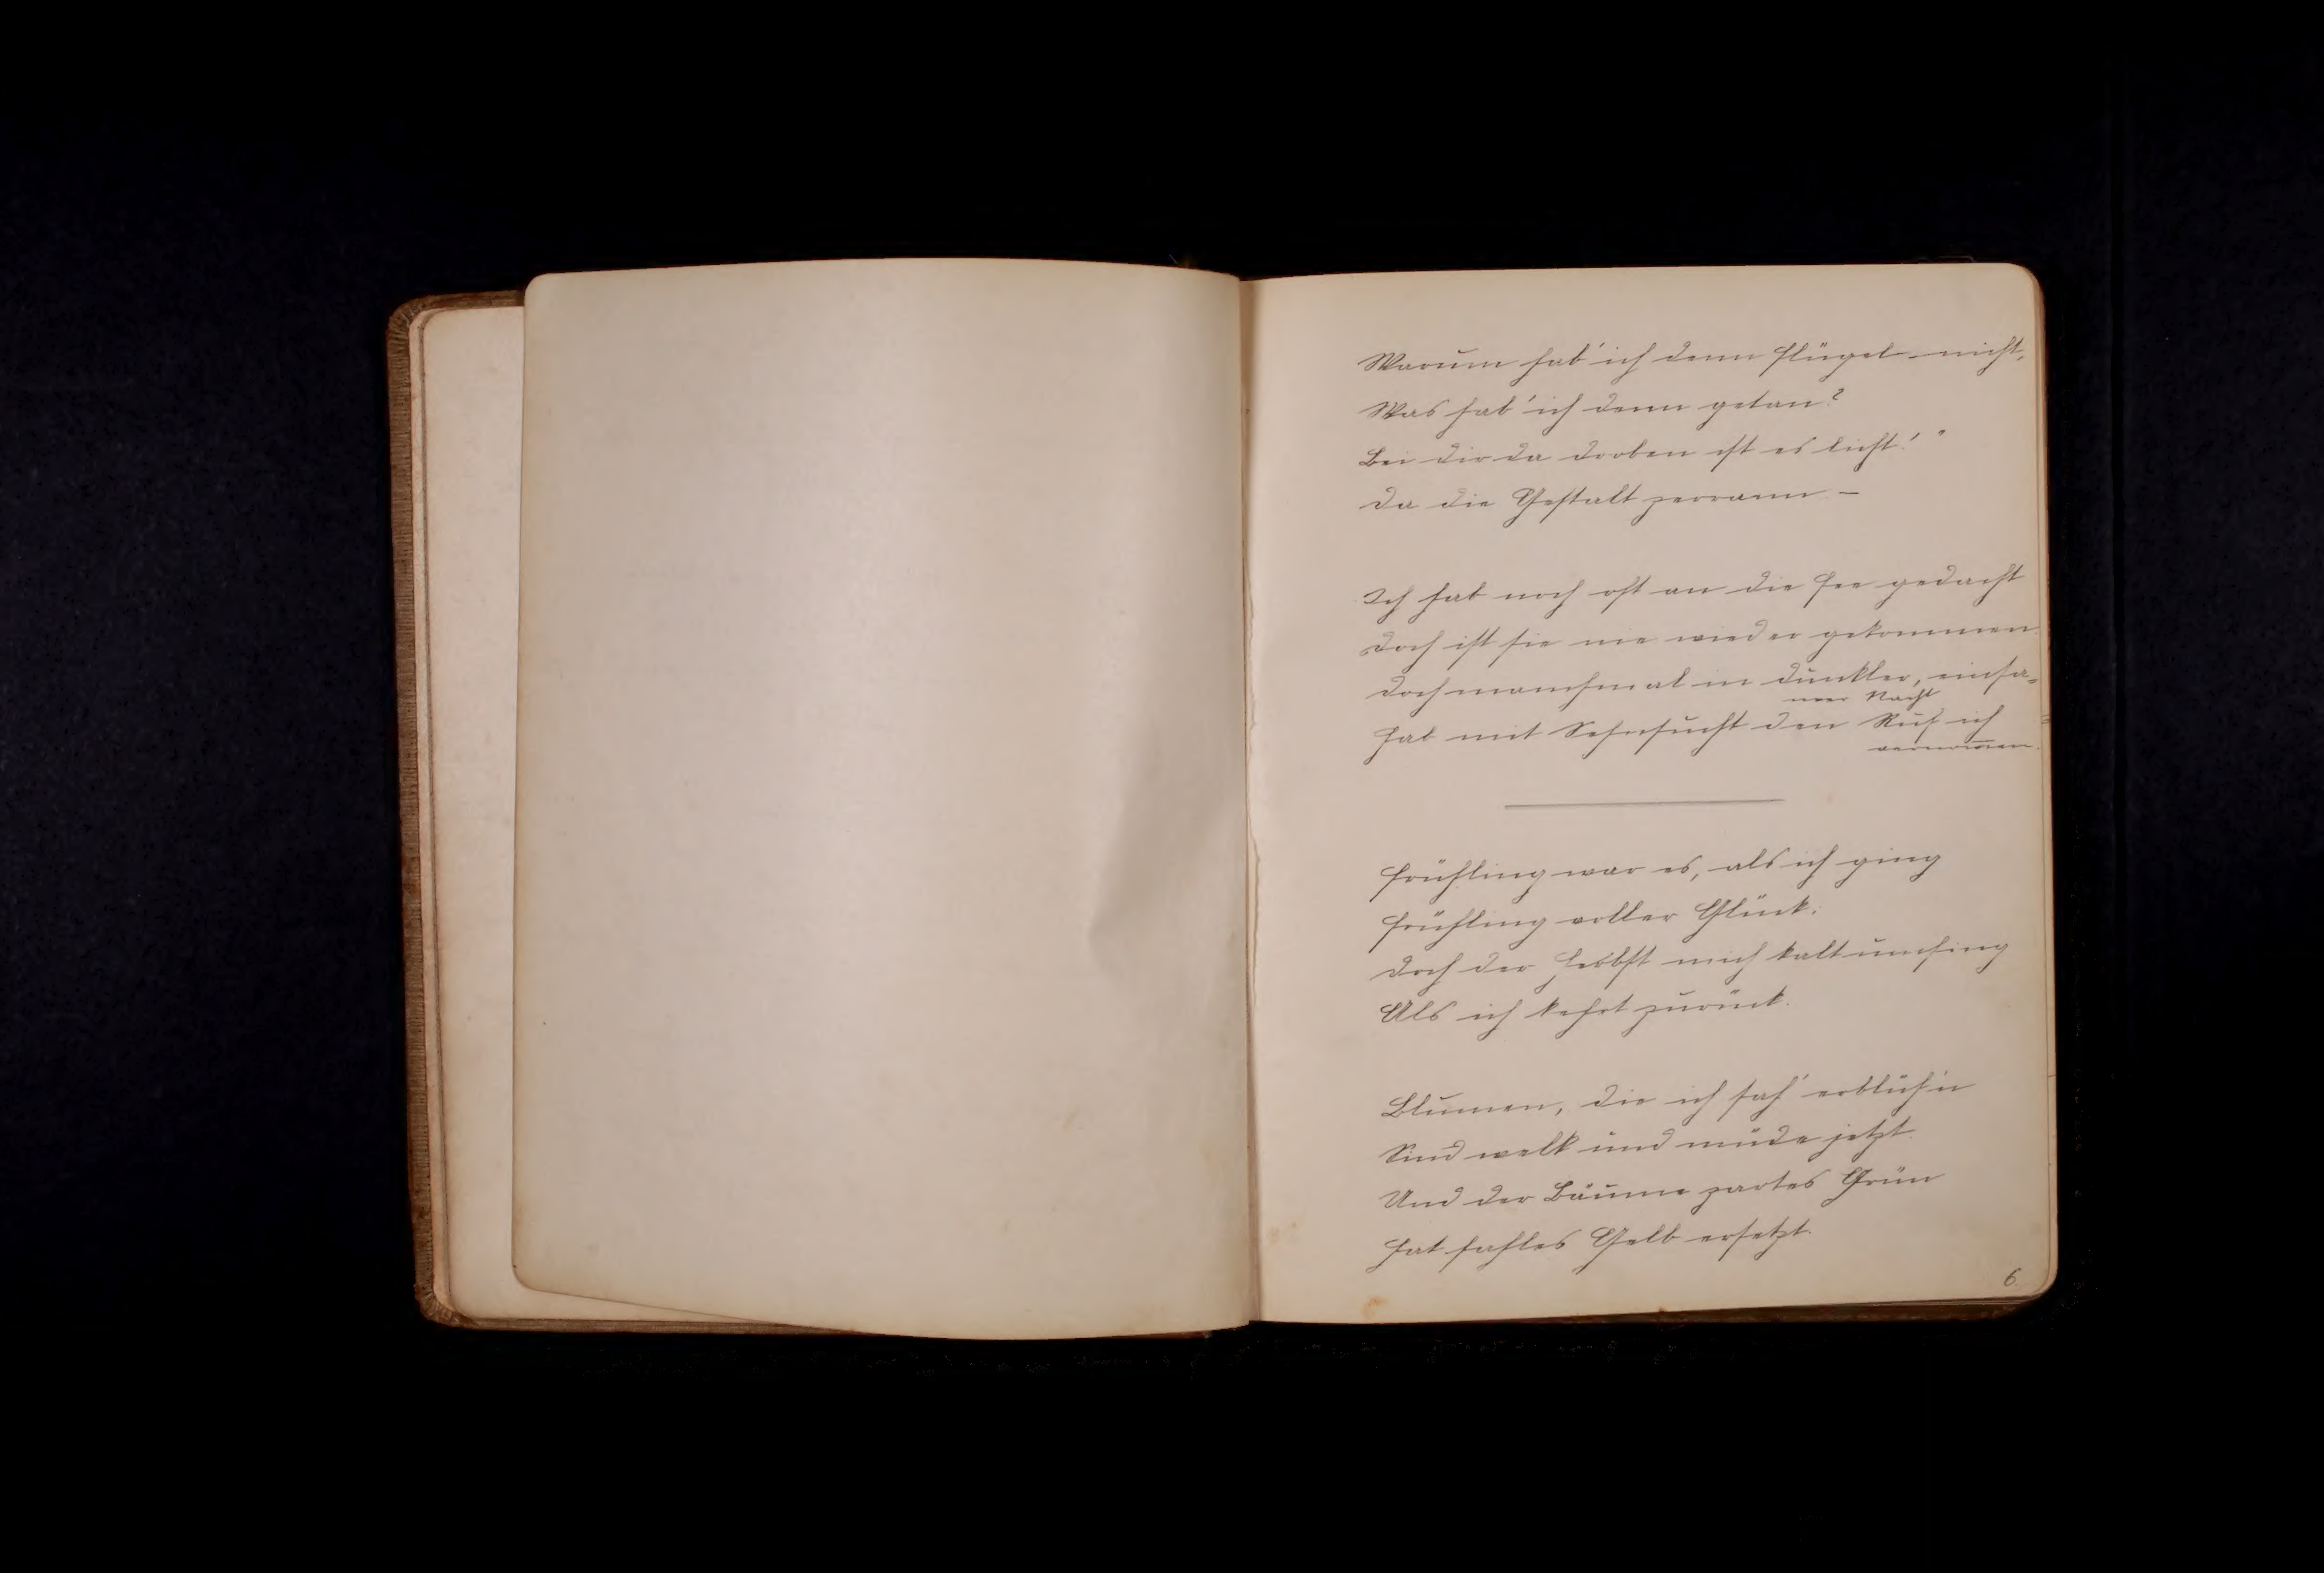 Warum hab' ich denn Flügel nicht,
Was hab' ich denn getan?
Bei dir da droben ist es licht!"
Da die Gestalt zerrann. –
Ich hab noch oft an die Fee gedacht
Doch ist sie nie wieder gekommen.
Doch manchmal in dunkler, einsa-
mer Nacht
Hab mit Sehnsucht den Ruf ich
vernom̅en.
Frühling war es, als ich ging
Frühling voller Glück.
Doch der Herbst mich kalt umfing
Als ich kehrt zurück.
Blumen, die ich sah' erblüh'n
Sind welk und müde jetzt.
Und der Bäume zartes Grün
Hat fahles Gelb ersetzt.
6